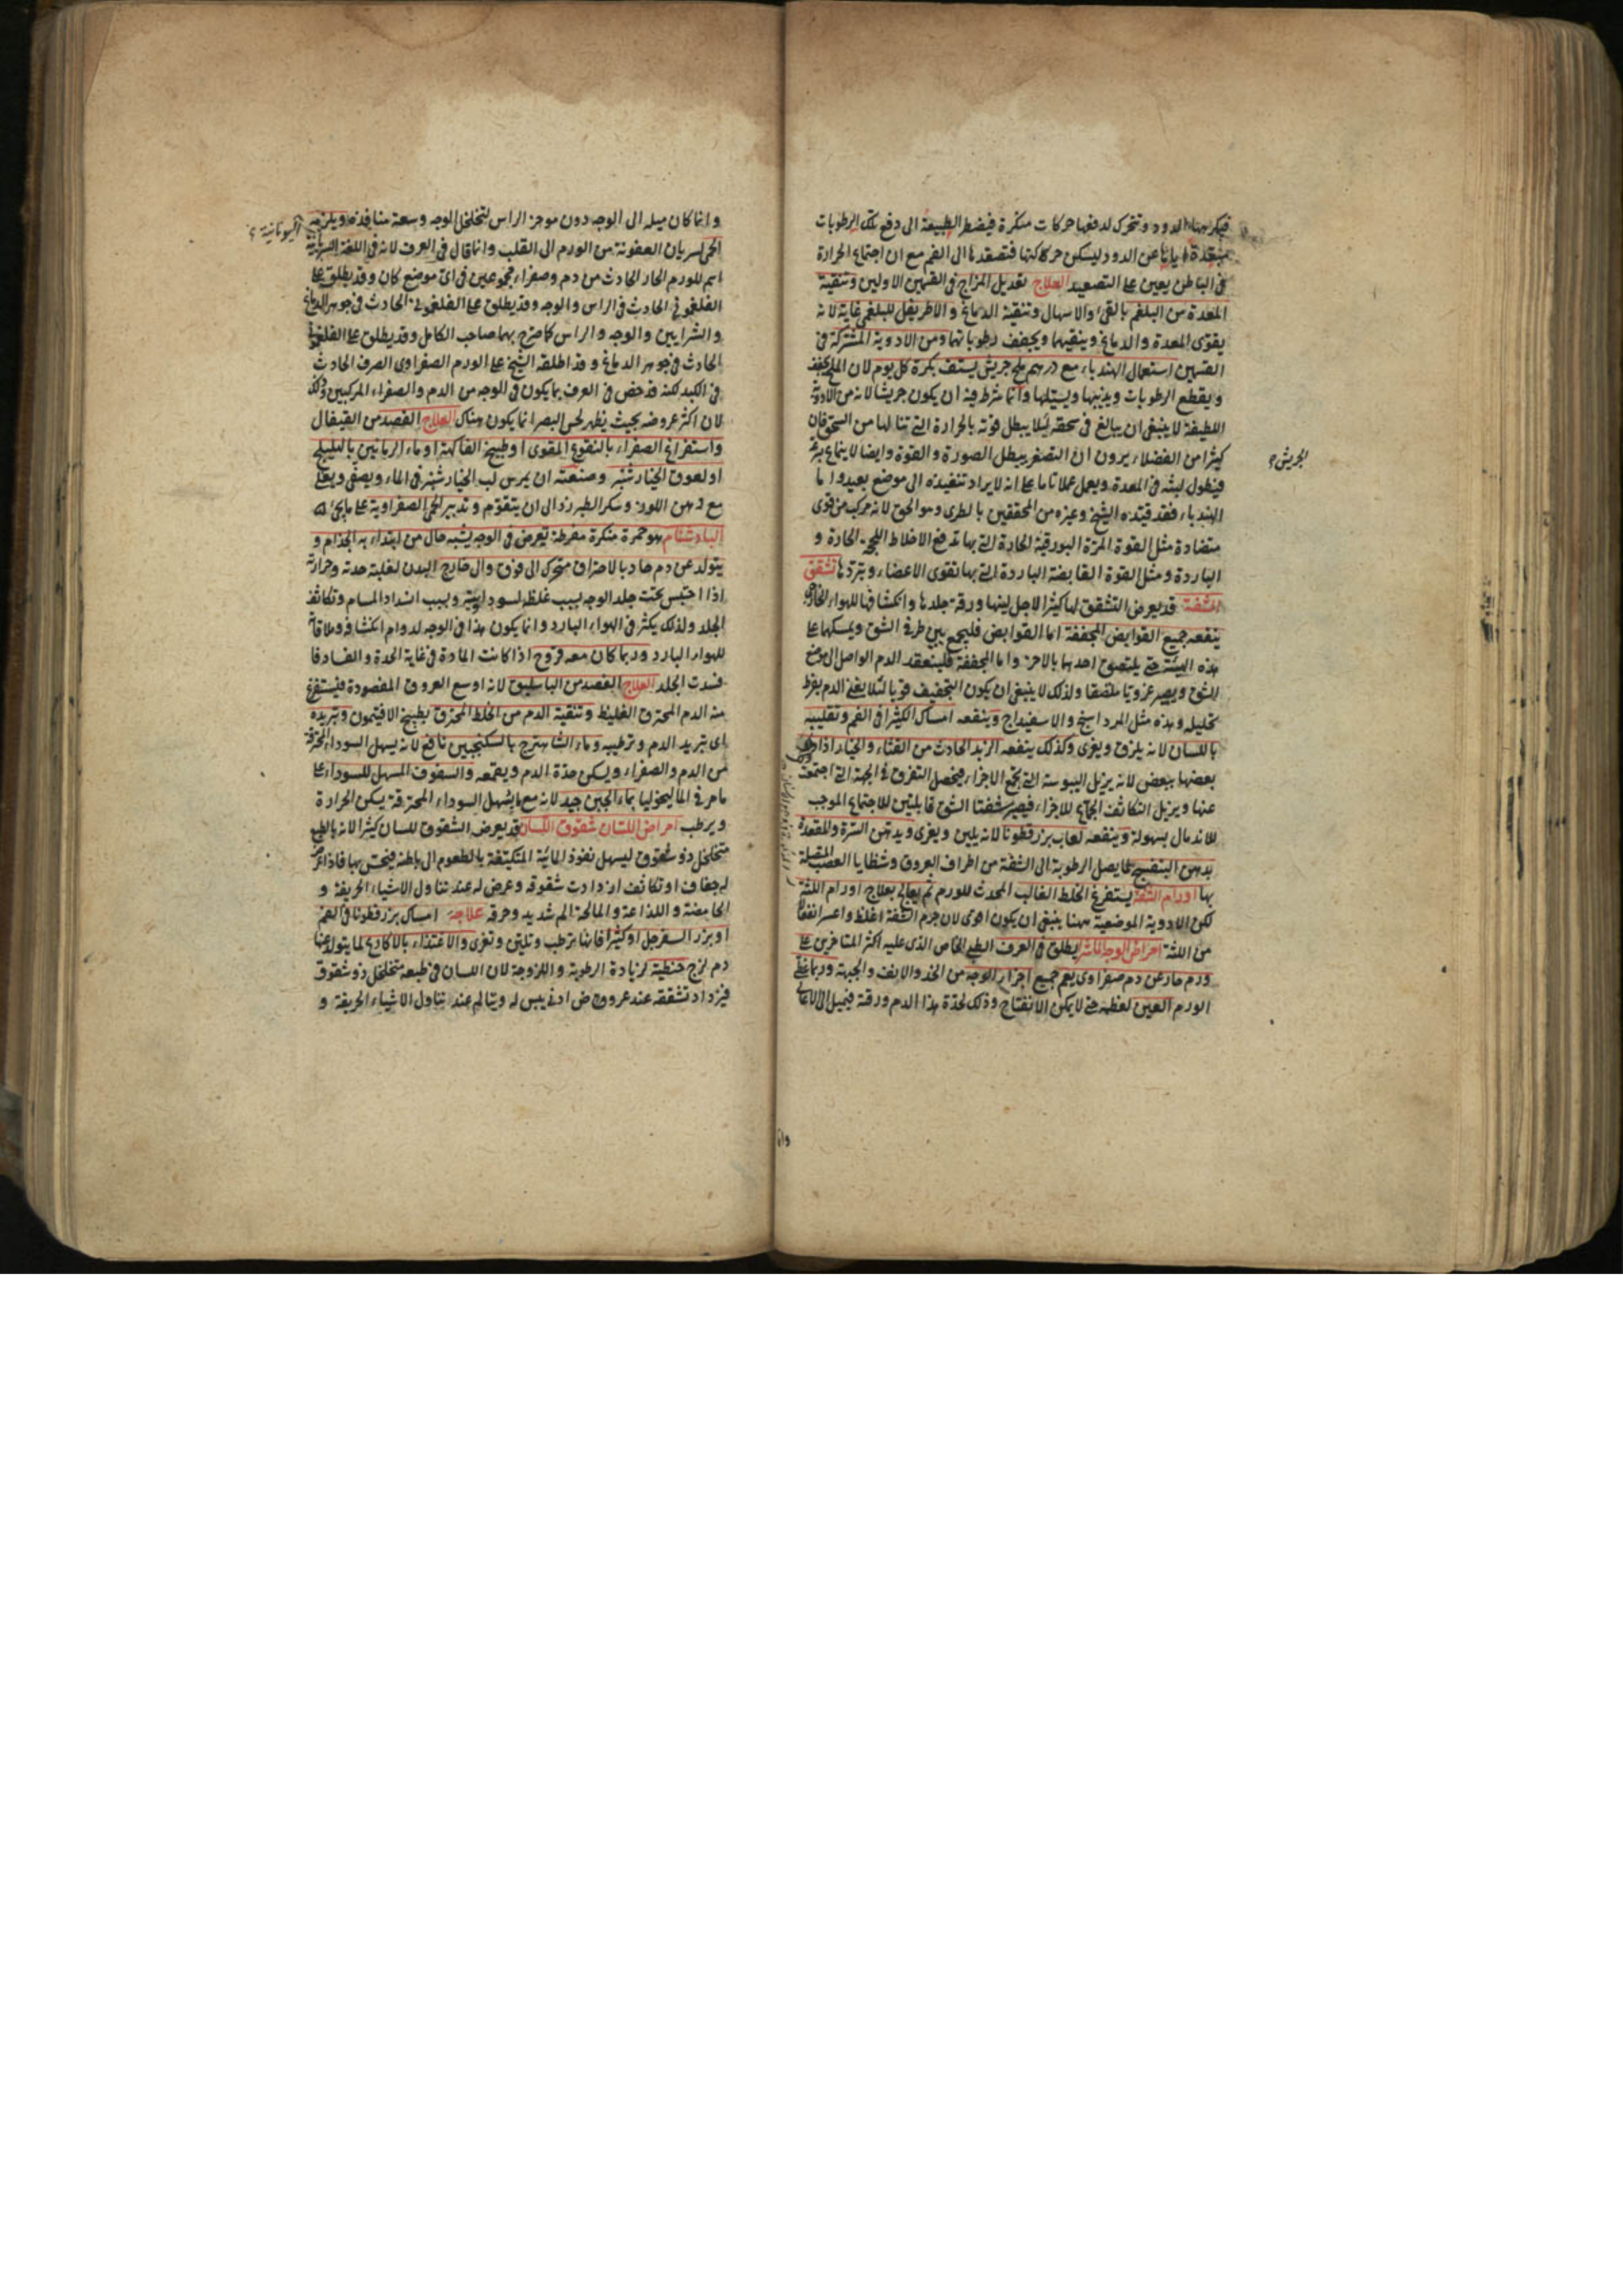 فيكرهها الدود وتتحرك لدفعها حركات منكرة فيضطر الطبيعة الى دفع تلك الرطوبات
اياها عن الدود ليسكن حركاتها فتصعدها الى الفم مع ان اجتماع الحرارة
فى الباطن يعين على التصعيد العلاج تعديل المزاج فى القسمين الاولين وتنقية
المعدة من البلغم بالقىء والاسهال وتنقية الدماغ والاطريفل للبلغمى غاية لانه
يقوى المعدة والدماغ وينقيهما ويجفف رطوباتهما ومن الادوية المشتركة فى
القسمين استعمال الهندباء مع درهم ملح جريش يستف بكرة كل يوم لان الملح يجفف
ويقطع الرطوبات ويذيبها ويسيلها وانما شرط فيه ان يكون جريشا لانه من الادوية
اللطيفة لا ينبغى ان يبالغ فى سحقه لئلا يبطل قوته بالحرارة التى تنالها من السحق فان
كثيرا من الفضلاء يرون ان التصغير يبطل الصورة والقوة وايضا لا ينماع
فيطول لبثه فى المعدة ويعمل عملا تاما على انه لا يراد تنفيذه الى موضع بعيد واما
الهندباء فقد قيده الشيخ وغيره من المحققين بالطرى وهو الحق لانه مركب من قوى
متضادة مثل القوة المرة البورقية الحادة التى بها تدفع الاخلاط الحادة و
الباردة ومثل القوة القابضة الباردة التى بها تقوى الاعضاء وتبردها تشقق
الشفة قد يعرض التشقق لها كثيرا لاجل لينها ورقة جلدها وانكشافها للهواء
ينفعه جميع القوابض المجففة اما القوابض فليجمع بين طرفى الشق ويمسكها على
هذه الهيئة حتى يلتصق احدهما بالاخر واما المجففة فلينعقد الدم الواصل الى موضع
الشق ويصير غرويا ملصقا ولذلك لا ينبغى ان يكون التجفيف قويا لئلا يفنى الدم بفرط
تحليله وهذه مثل المرداسنج والاسفيداج وينفعه امساك الكثيرا فى الفم وتقليبه
باللسان لانه يلزق ويغرى وكذلك ينفعه الزبد الحادث من القثاء والخيار اذا دلك
بعضها ببعض لانه يزيل اليبوسة التى تجمع الاجزاء فيحصل التفرق فى الجهة التى اجتمعت
عنها ويزيل التكاثف الجامع للاجزاء فيصير شفتا الشق قابلتين للاجتماع الموجب
للاندمال بسهولة وينفعه لعاب بزرقطونا لانه يلين ويغرى ويدهن السرة والمقعدة
بدهن البنفسج لما يصل الرطوبة الى الشفة من اطراف العروق وشظايا العصب المتصلة
بها اورام الشفة يستفرغ الخلط الغالب المحدث للورم ثم يعالج بعلاج اورام اللثة
لكن الادوية الموضعية ههنا ينبغى ان يكون اقوى لان جرم الشفة اغلظ واعسر انفعالا
من اللثة امراض الوجه الماشرا يطلق فى العرف الطبى الخاص الذى عليه اكثر المتاخرين على
ورم حار عن دم صفراوى يعم جميع اجزاء الوجه من الخد والانف والجبهة وربما غطى
الورم العين لعظمه حتى لا يمكن الانفتاح وذلك لحدة هذا الدم ورقته فيميل الى الاعالى
الجريش
وانما
وانما كان ميله الى الوجه دون موخر الراس لتخلخل الوجه وسعة منافذه ويلزمه
الحمى لسريان العفونة من الورم الى القلب وانما قال فى العرف لانه فى اللغة السريانية
اليونانية
اسم للورم الحار الحادث من دم وصفراء مجموعين فى اى موضع كان وقد يطلق على
الفلغمونى الحادث فى الراس والوجه وقد يطلق على الفلغمونى الحادث فى جوهر الدماغ
والشرايين والوجه والراس كما صرح بهما صاحب الكامل وقد يطلق على الفلغمونى
الحادث فى جوهر الدماغ وقد اطلقه الشيخ على الورم الصفراوى الصرف الحادث
فى الكبد لكنه قد خص فى العرف بما يكون فى الوجه من الدم والصفراء المركبين وذلك
لان اكثر عروضه بحيث يظهر لحس البصر انما يكون هناك العلاج الفصد من القيفال
واستفراغ الصفراء بالنقوع المقوى او طبيخ الفاكهة او ماء الرمانين بالهليلج
او لعوق الخيارشنبر وصنعته ان يمرس لب الخيارشنبر فى الماء ويصفى ويغلى
مع دهن اللوز وسكر الطبرزذ الى ان يتقوم وتدبير الحمى الصفراوية على ما يجىء
البادشنام هو حمرة منكرة مفرطة تعرض فى الوجه يشبه حال من ابتداء به الجذام و
يتولد عن دم حاد بالاحتراق متحرك الى فوق والى خارج البدن لغلبة حدته وحرارته
اذا احتبس تحت جلد الوجه بسبب غلظه لسوداويته وبسبب انسداد المسام وتكاثف
الجلد ولذلك يكثر فى الهواء البارد وانما يكون هذا فى الوجه لدوام انكشافه وملاقاته
للهواء البارد وربما كان معه قروح اذا كانت المادة فى غاية الحدة والفساد فا
فسدت الجلد العلاج الفصد من الباسليق لانه اوسع العروق المفصودة فيستفرغ
منه الدم المحترق الغليظ وتنقية الدم من الخلط المحترق بطبيخ الافتيمون وتبريده
اى تبريد الدم وترطيبه وماء الشاهترج بالسكنجبين نافع لانه يسهل السوداء المحترقة
من الدم والصفراء ويسكن حدة الدم ويقمعه والسفوف المسهل للسوداء على
ما مر فى الماليخوليا بماء الجبن جيد لانه مع ما يسهل السوداء المحترقة يسكن الحرارة
ويرطب امراض اللسان شقوق اللسان قد يعرض الشقوق للسان كثيرا لانه بالطبع
متخلخل ذو شقوق ليسهل نفوذ المائية المتكيفة بالطعوم الى باطنه فيحس بها فاذا عرض
له جفاف او تكاثف ازدادت شقوقه وعرض له عند تناول الاشياء الحريفة و
الحامضة واللذاعة والمالحة الم شديد وحرقة علاجه امساك بزرقطونا فى الفم
او بزر السفرجل او كثيرا فانها ترطب وتلين وتغرى والاغتذاء بالاكارع لما يتولد عنها
دم لزج حنطية لزيادة الرطوبة واللزوجة لان اللسان فى طبعه متخلخل ذو شقوق
فيزداد تشققه عند عروض ادنى يبس له ويتالم عند تناول الاشياء الحريفة و